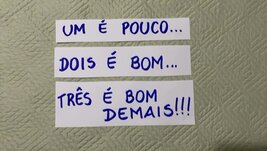 UM É POUCO...
DOIS É BOM...
TRÊS É BOM
DEMAIS!!!